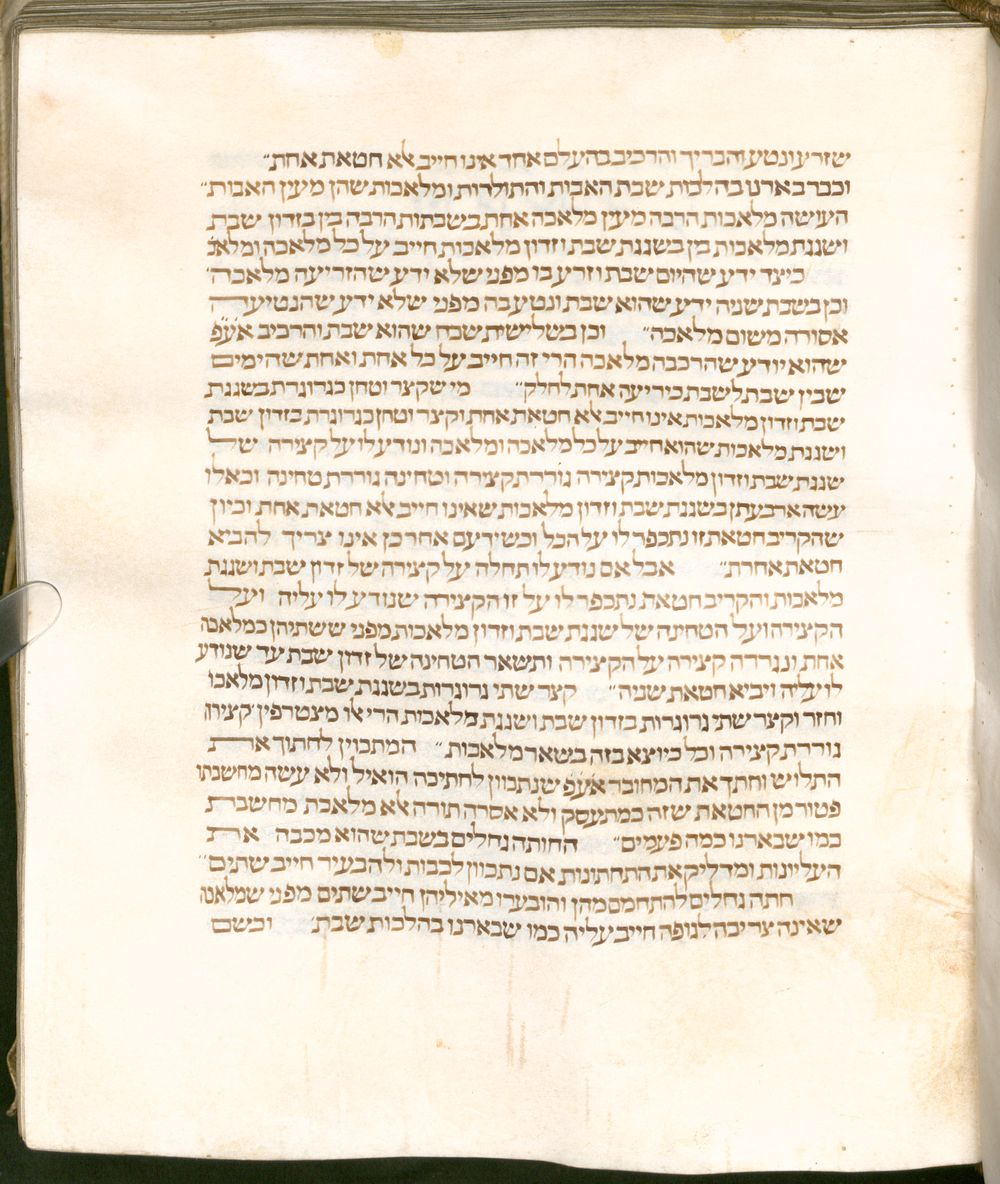 שזרע ונטע והבריך והרכיב בהעלם אחד אינו חייב אלא חטאת אחת״
וכבר בארנו בהלכות שבת האבות והתולדות ומלאכות שהן מעין האבות״
העושה מלאכות הרבה מעין מלאכה אחת בשבתות הרבה בין בזדון שבת
ושגגת מלאכות בין בשגגת שבת וזדון מלאכות חייב על כל מלאכה ומלאכ׳
כיצד ידע שהיום שבת וזרע בו מפני שלא ידע שהזריעה מלאכה׳
וכן בשבת שניה ידע שהוא שבת ונטע בה מפני שלא ידע שהנטיעה
אסורה משום מלאכה״ וכן בשלישית שכח שהוא שבת והרכיב אע״פ
שהוא יודע שהרכבה מלאכה הרי זה חייב על כל אחת ואחת שהימים
שבין שבת לשבת כידיעה אחת לחלק״ מי שקצר וטחן כגרוגרת בשגגת
שבת וזדון מלאכות אינו חייב אלא חטאת אחת וקצר וטחן כגרוגרת בזדון שבת
ושגגת מלאכות שהוא חייב על כל מלאכה ומלאכה ונודע לו על קצירה של
שגגת שבת וזדון מלאכות קצירה גוררת קצירה וטחינה גוררת טחינה וכאלו
עשה ארבעתן בשגגת שבת וזדון מלאכות שאינו חייב אלא חטאת אחת וכיון
שהקריב חטאת זו נתכפר לו על הכל וכשידע אחר כן אינו צריך להביא
חטאת אחרת״ אבל אם נודע לו תחלה על קצירה של זדון שבת ושגגת
מלאכות והקריב חטאת נתכפר לו על זו הקצירה שנודע לו עליה ועל
הקצירה ועל הטחינה של שגגת שבת וזדון מלאכות מפני ששתיהן כמלאכה
אחת ונגררה קצירה על הקצירה ותשאר הטחינה של זדון שבת עד שנודע
לו עליה ויביא חטאת שניה״ קצר שתי גרוגרות בשגגת שבת וזדון מלאכו
וחזר וקצר שתי גרוגרות בזדון שבת ושגגת מלאכות הרי אלו מצטרפין קצירה
גוררת קצירה וכל כיוצא בזה בשאר מלאכות״ המתכוין לחתוך את
התלוש וחתך את המחובר אע״פ שנתכוון לחתיכה הואיל ולא עשה מחשבתו
פטור מן החטאת שזה כמתעסק ולא אסרה תורה אלא מלאכת מחשבת
כמו שבארנו כמה פעמים״ החותה גחלים בשבת שהוא מכבה את
העליונות ומדליק את התחתונות אם נתכוון לכבות ולהבעיר חייב שתים״
חתה גחלים להתחמם מהן והובערו מאיליהן חייב שתים מפני שמלאכה
שאינה צריכה לגופה חייב עליה כמו שבארנו בהלכות שבת׳ וכשם